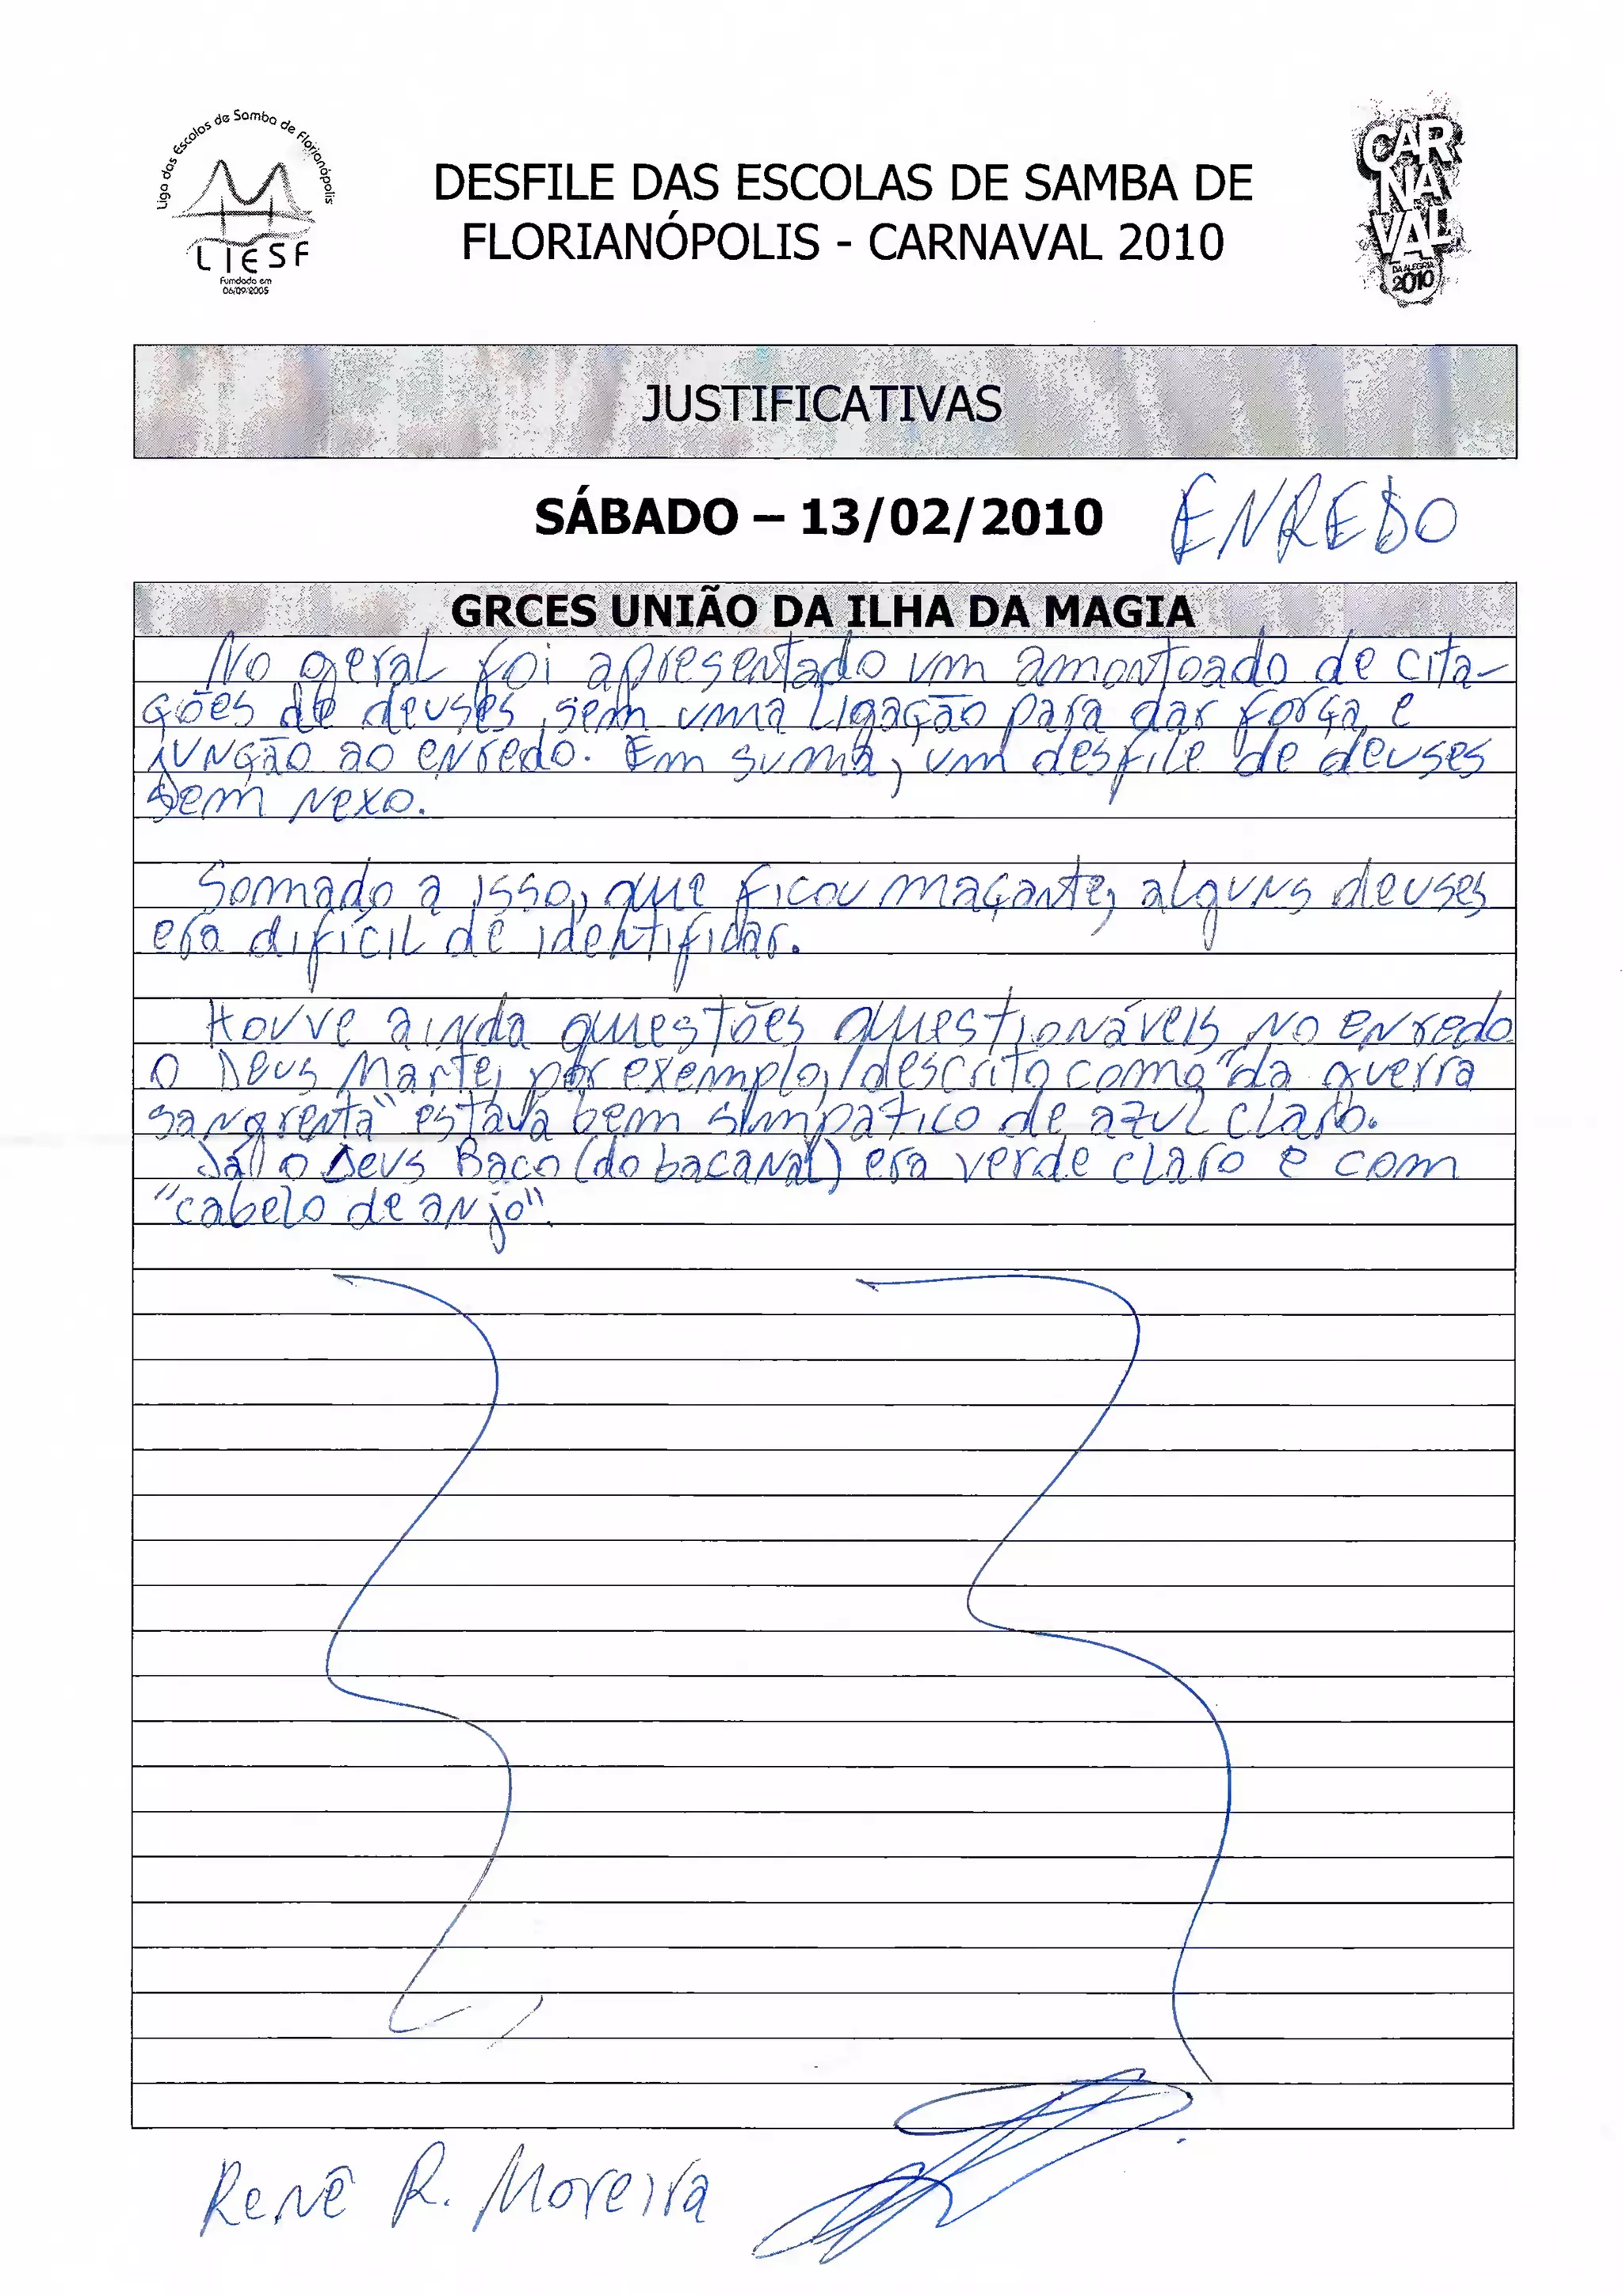 Liga das Escolas de Samba de Florianópolis
LIESF
Fundada em
06/09/2005
DESFILE DAS ESCOLAS DE SAMBA DE
FLORIANÓPOLIS - CARNAVAL 2010
CAR
NA
VAL
DA ALEGRIA
2010
JUSTIFICATIVAS
SÁBADO – 13/02/2010 ENREDO
GRCES UNIÃO DA ILHA DA MAGIA
No geral foi apresentado um amontoado de cita-
ções de deuses, sem uma ligação para dar força e
junção ao enredo. Em suma, um desfile de deuses
sem nexo.
Somado a isso, que ficou maçante, alguns deuses
era difícil de identificar.
Houve ainda questões questionáveis no enredo
O Deus Marte, por exemplo, descrito como "da guerra
sangrenta" estava bem simpático de azul claro.
Já o Deus Baco (do bacanal) era verde claro e com
"cabelo de anjo".
Renê R. Moreira